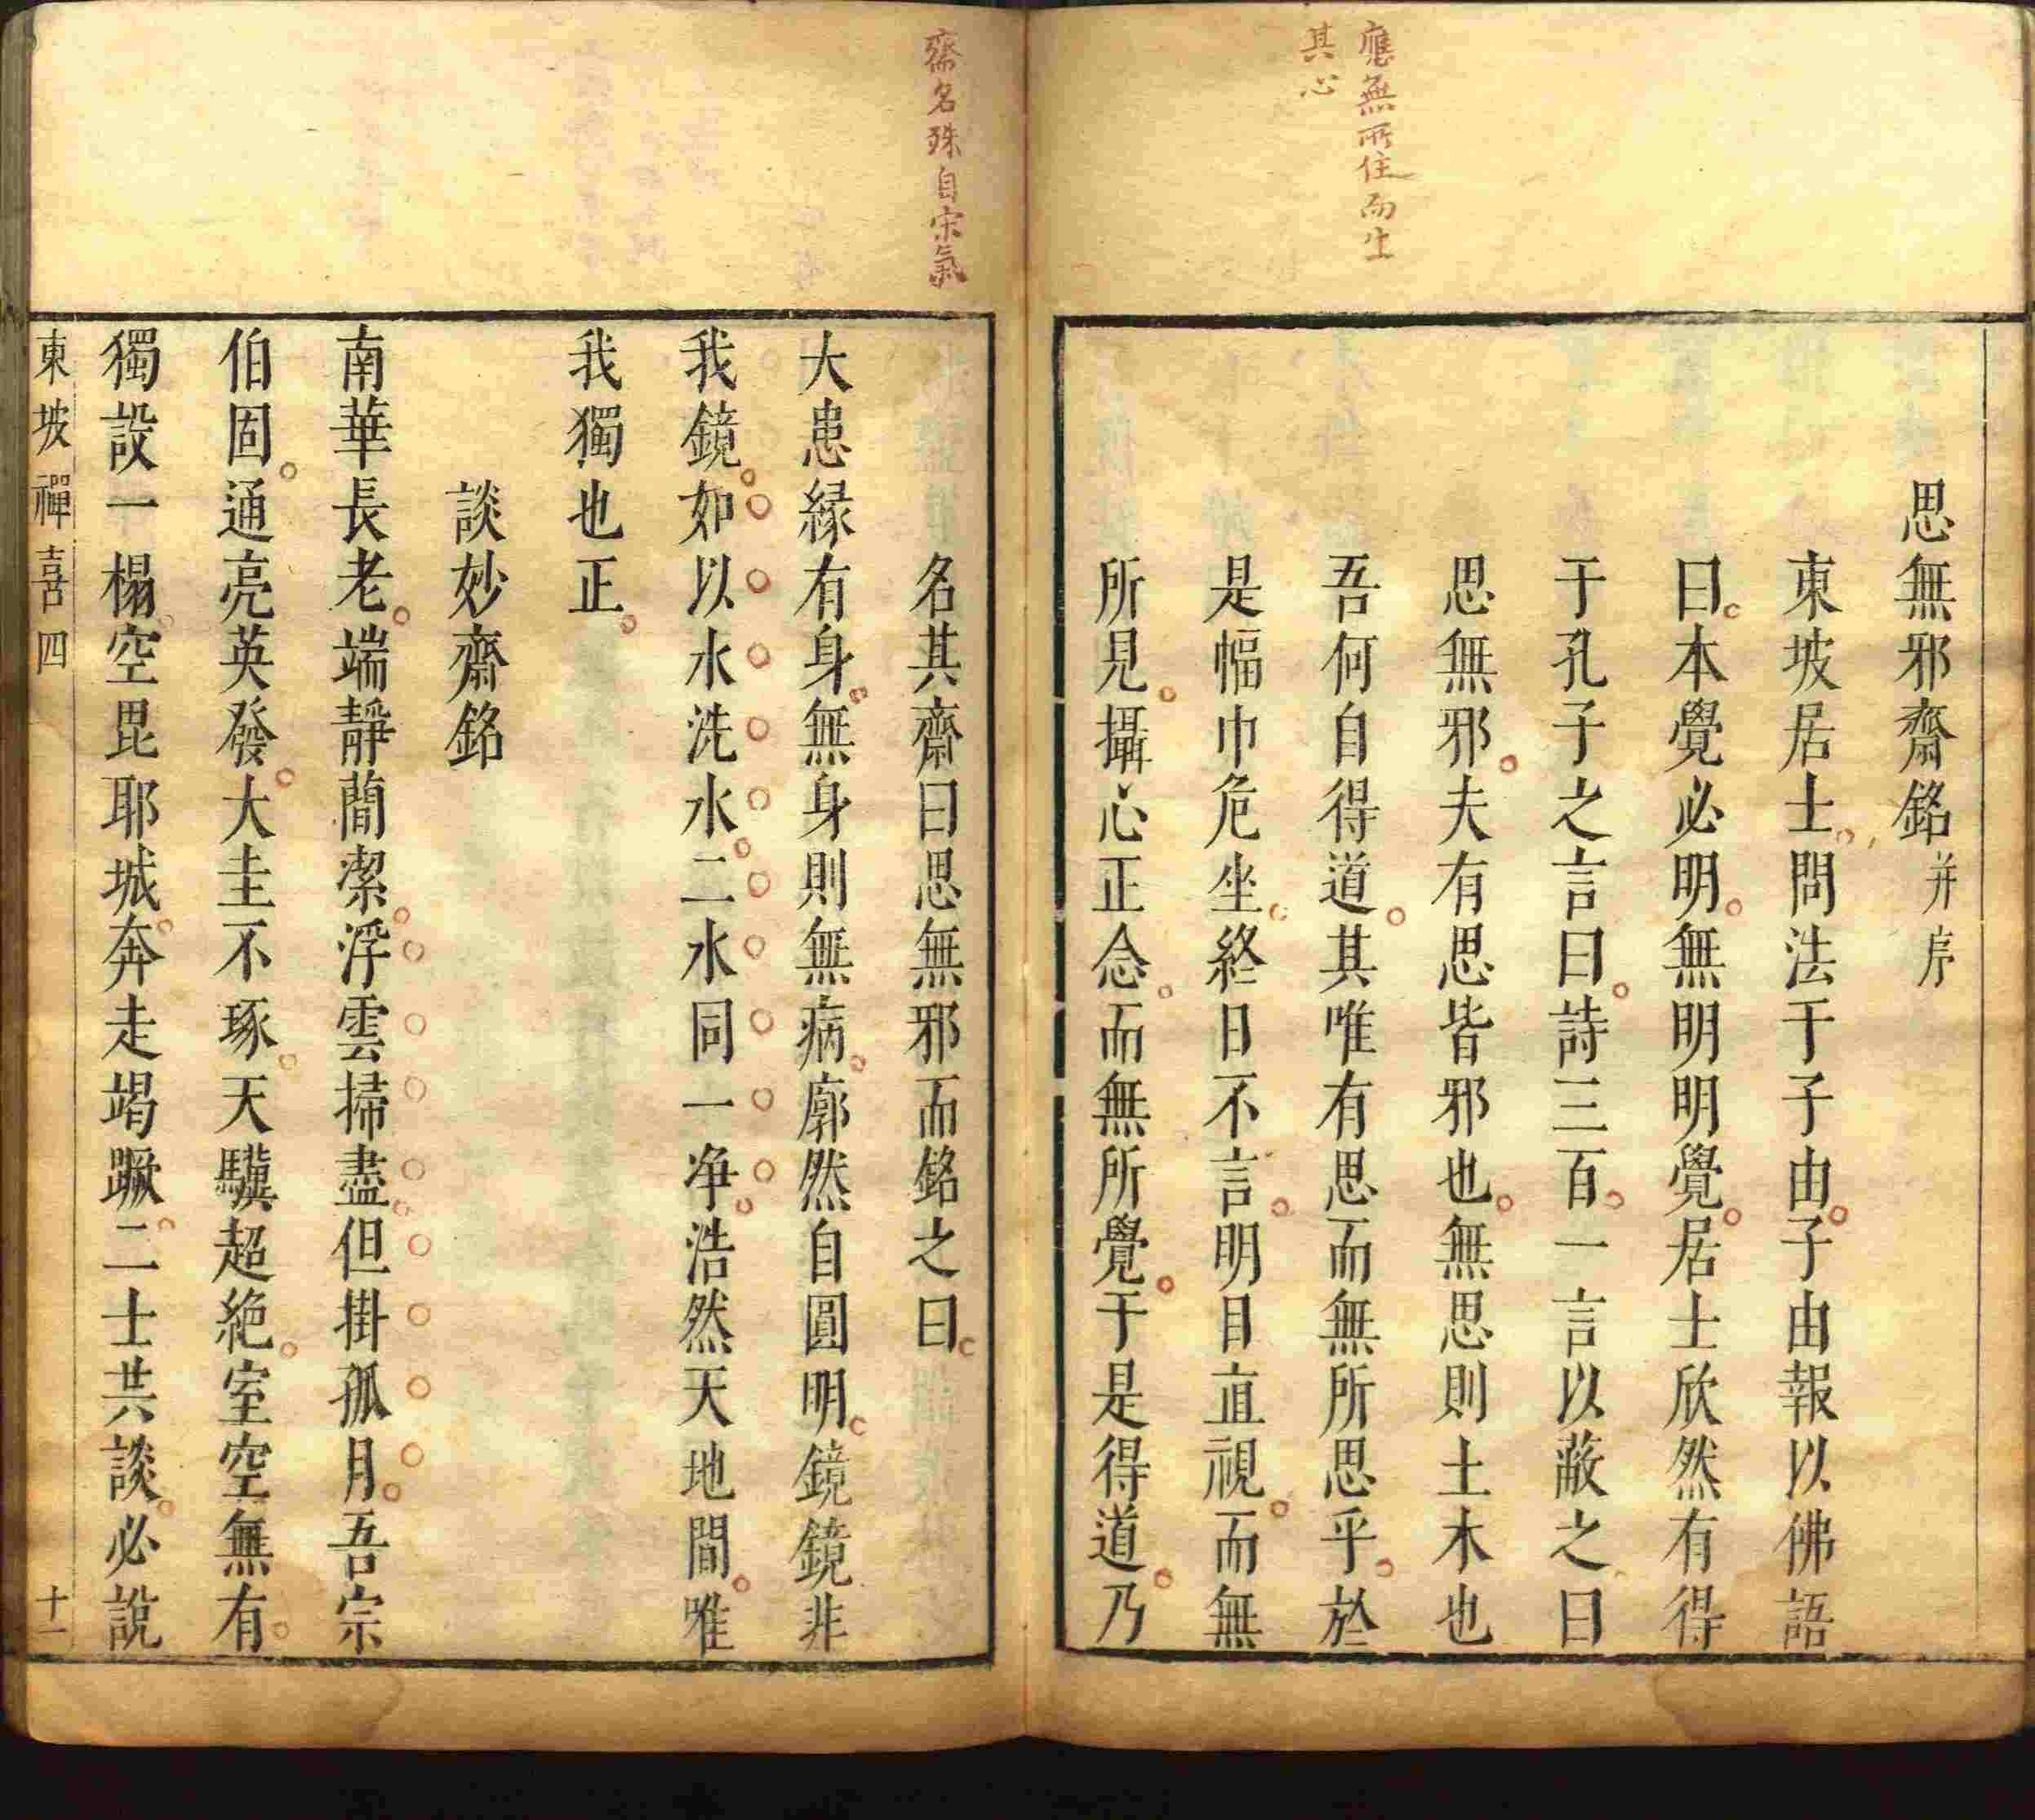 應無所住而生
其心
思無邪齋銘并序
東坡居士問法于子由子由報以佛語
曰本覺必明無明明覺居士欣然有得
于孔子之言曰詩三百一言以蔽之曰
思無邪夫有思皆邪也無思則土木也
吾何自得道其唯有思而無所思乎於
是幅巾危坐終日不言明目直視而無
所見攝心正念而無所覺于是得道乃
齋名殊自宋氣
名其齋曰思無邪而銘之曰
大患緣有身無身則無病廓然自圓明鏡鏡非
我鏡如以水洗水二水同一净浩然天地間唯
我獨也正
談妙齋銘
南華長老端靜簡潔浮雲掃盡但掛孤月吾宗
伯固通亮英發大圭不琢天驥超絕室空無有
獨設一榻空毘耶城奔走竭蹶二士共談必說
東坡禪喜四 十一